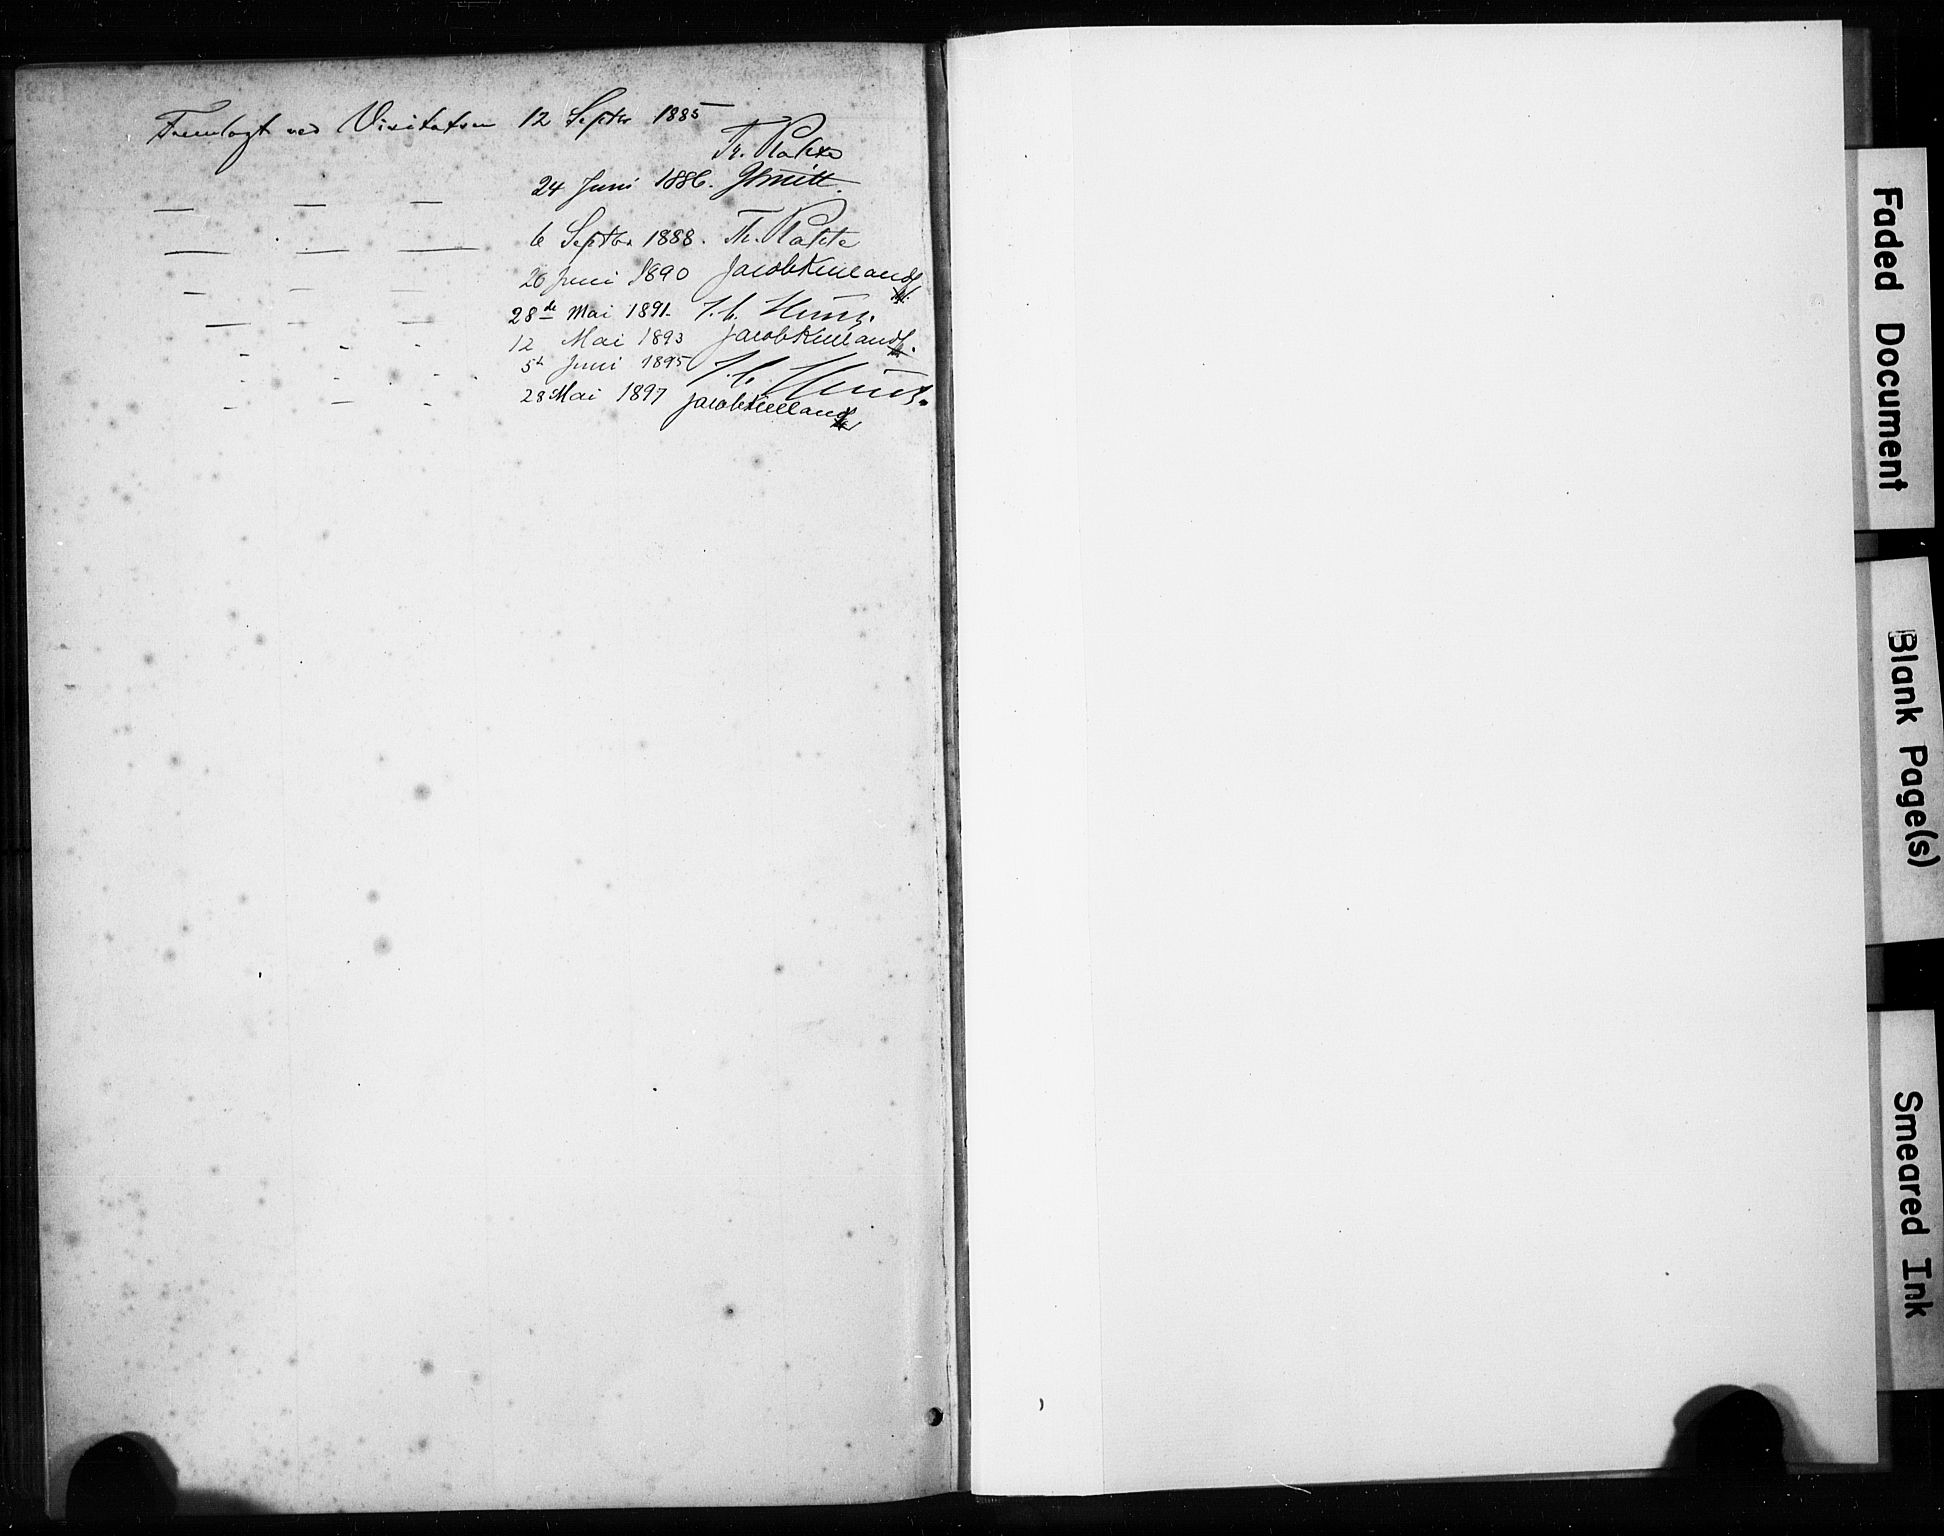 Fremlagt ved Visitatsen 12 Septbr 1885
24 Juni 1886.
— — — 6 Septbr 1888.
— — — 20 Juni 1890 Jacob Kielland
— — — 28de Mai 1891.
— — — 12 Mai 1893 Jacob Kielland
- - - 5te Juni 1895
- - - 28 Mai 1897 Jacob Kielland
Faded Document
Blank Page(s)
Smeared Ink